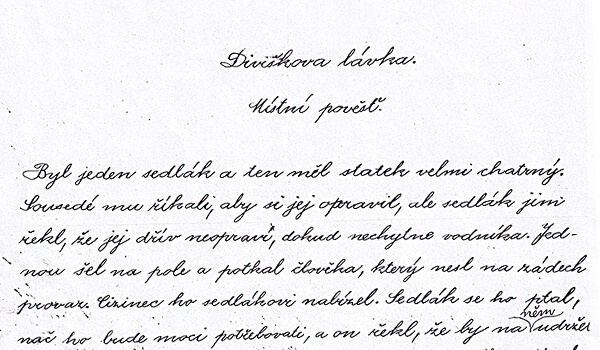 Diviškova lávka.
Místní pověsť.
Byl jeden sedlák a ten měl statek velmi chatrný.
Sousedé mu říkali, aby si jej opravil, ale sedlák jim
řekl, že jej dřív neopraví, dokud nechytne vodníka. Jed-
nou šel na pole a potkal člověka, který nesl na zádech
provaz. Cizinec ho sedlákovi nabízel. Sedlák se ho ptal,
nač ho bude moci potřebovati, a on řekl, že by na něm udržel